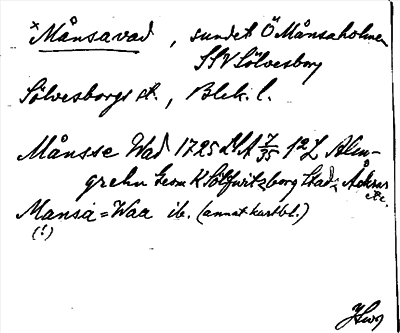 *Månsavad, sundet Ö Månsaholmen
SSV Sölvesborg
Sölvesborgs st., Blek. l.
Månsse Wad 1725 LSA 7/35 1:2 L Alm-
grehn Geom K Sölfwitzborg Stadz Åkrar etc.
Mansa=Waa ib. (annat kartbl.)
(!)